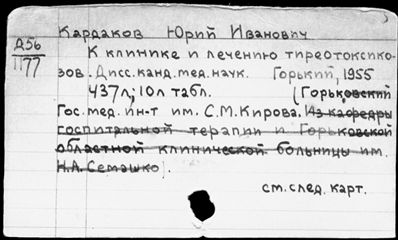 Кардаков Юрий Иванович
Д56
1177
К клинике и лечению тиреотоксико-
зов. Дисс. канд. мед. наук. Горький, 1955
437 л; 10 л табл. (Горьковский
Гос. мед. ин-т им. С.М. Кирова. Из кафедры
госпитальной терапии и Горьковской
областной клинической больницы им.
Н.А. Семашко).
см. след. карт.